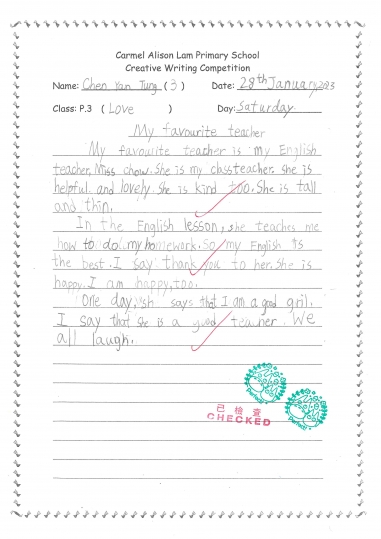 Carmel Alison Lam Primary School
Creative Writing Competition
Name: Chen Yan Tung (3) Date: 28th January, 2023
Class: P.3 (Love) Day: Saturday
My favourite teacher
My favourite teacher is my English
teacher, Miss chow. She is my classteacher. she is
helpful and lovely. She is kind too. She is tall
and thin.
In the English lesson, she teaches me
how to do my homework. So my English is
the best. I say thank you to her. She is
happy. I am happy, too.
One day, sh says that I am a good gril.
I say that she is a good teacher. We
all laugh.
已檢查
CHECKED